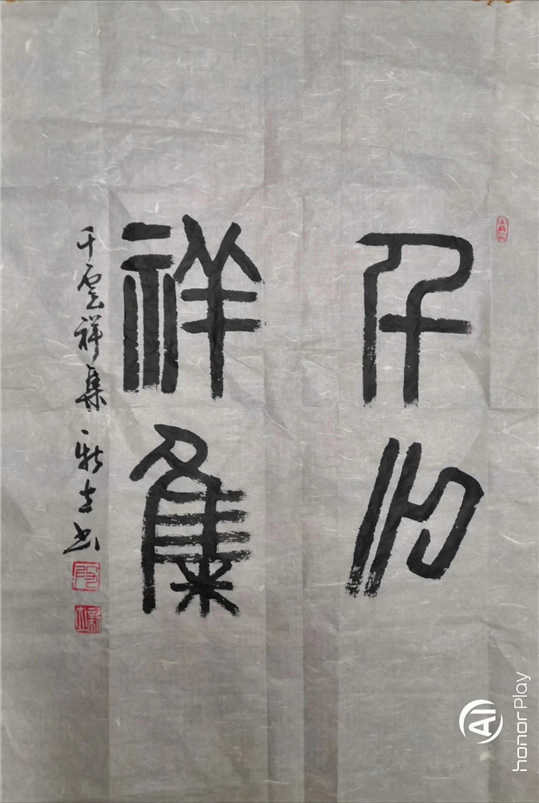 千云
祥集
千雲祥集 新立书
AI
honor Play